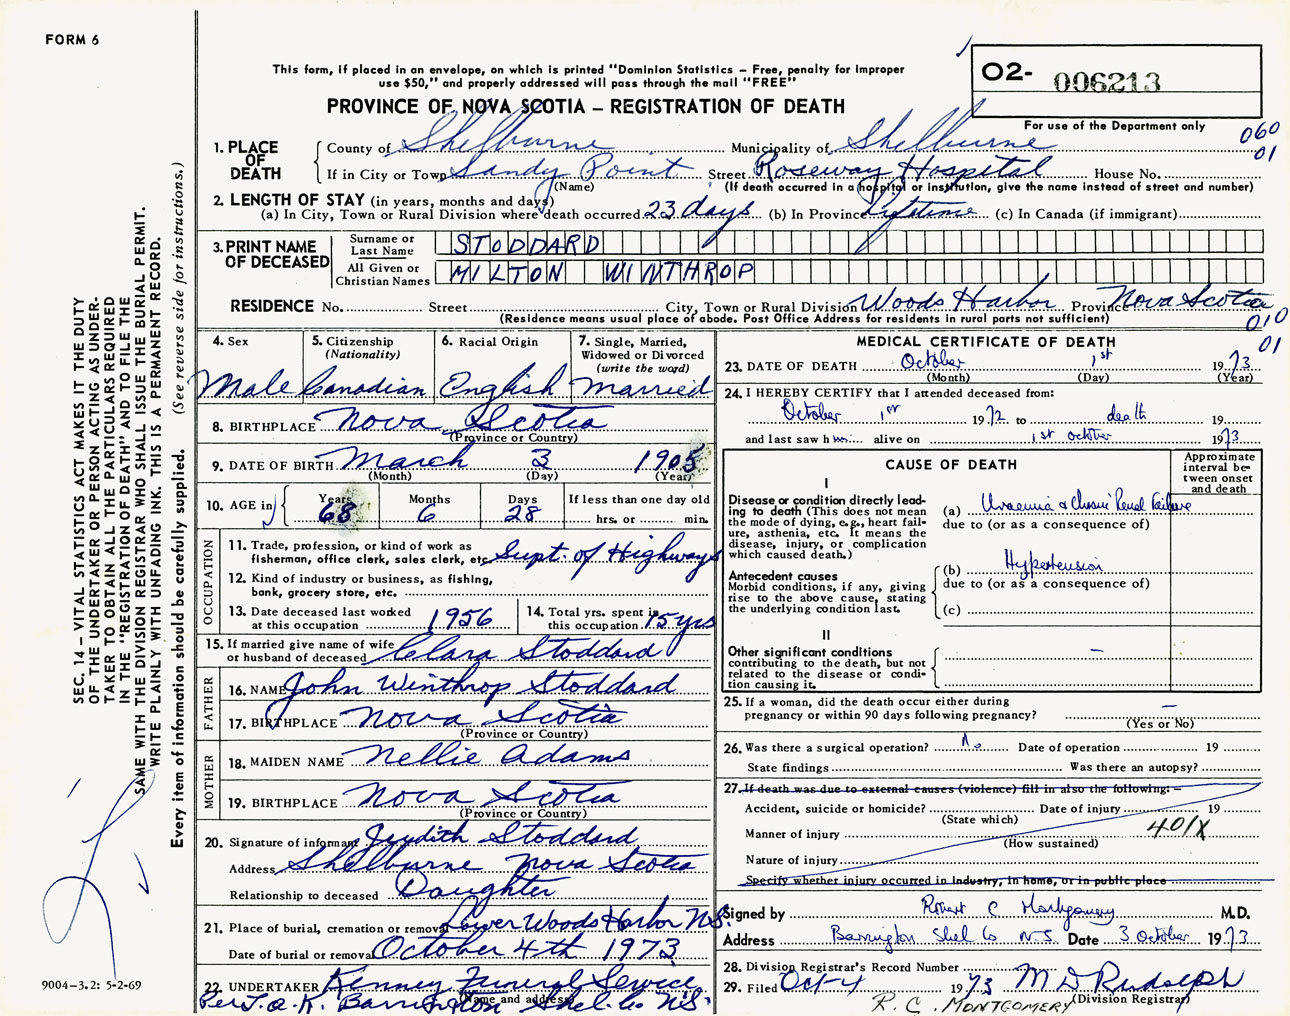 FORM 6
This form, if placed in an envelope, on which is printed "Dominion Statistics – Free, penalty for improper
use $50," and properly addressed will pass through the mail "FREE"
PROVINCE OF NOVA SCOTIA – REGISTRATION OF DEATH
O2- 006213
For use of the Department only
060
01
1. PLACE OF DEATH
County of Shelburne Municipality of Shelburne
If in City or Town Sandy Point Street Roseway Hospital House No.
(Name) (If death occurred in a hospital or institution, give the name instead of street and number)
2. LENGTH OF STAY (in years, months and days)
(a) In City, Town or Rural Division where death occurred 23 days (b) In Province Lifetime (c) In Canada (if immigrant)
3. PRINT NAME OF DECEASED
Surname or Last Name STODDARD
All Given or Christian Names MILTON WINTHROP
RESIDENCE No. Street City, Town or Rural Division Woods Harbor Province Nova Scotia
(Residence means usual place of abode. Post Office Address for residents in rural parts not sufficient)
010
01
4. Sex
Male
5. Citizenship
(Nationality)
Canadian
6. Racial Origin
English
7. Single, Married,
Widowed or Divorced
(write the word)
Married
8. BIRTHPLACE Nova Scotia
(Province or Country)
9. DATE OF BIRTH March 3 1905
(Month) (Day) (Year)
10. AGE in
Years Months Days If less than one day old
68 6 28 hrs. or min.
OCCUPATION
11. Trade, profession, or kind of work as
fisherman, office clerk, sales clerk, etc. Supt. of Highways
12. Kind of industry or business, as fishing,
bank, grocery store, etc.
13. Date deceased last worked
at this occupation 1956
14. Total yrs. spent in
this occupation 15 yrs
15. If married give name of wife
or husband of deceased Clara Stoddard
FATHER
16. NAME John Winthrop Stoddard
17. BIRTHPLACE Nova Scotia
(Province or Country)
MOTHER
18. MAIDEN NAME Nellie Adams
19. BIRTHPLACE Nova Scotia
(Province or Country)
20. Signature of informant Judith Stoddard
Address Shelburne Nova Scotia
Relationship to deceased Daughter
21. Place of burial, cremation or removal Lower Woods Harbor N.S.
Date of burial or removal October 4th 1973
22. UNDERTAKER Kenney Funeral Service
(Name and address)
Per J.A.K. Barrington Shel. Co. N.S.
MEDICAL CERTIFICATE OF DEATH
23. DATE OF DEATH October 1st 1973
(Month) (Day) (Year)
24. I HEREBY CERTIFY that I attended deceased from:
October 1st 1972 to death 19
and last saw him alive on 1st October 1973
CAUSE OF DEATH
Approximate
interval be-
tween onset
and death
I
Disease or condition directly lead-
ing to death (This does not mean
the mode of dying, e.g., heart fail-
ure, asthenia, etc. It means the
disease, injury, or complication
which caused death.)
(a) Uraemia & Chronic Renal Failure
due to (or as a consequence of)
Antecedent causes
Morbid conditions, if any, giving
rise to the above cause, stating
the underlying condition last.
(b) Hypertension
due to (or as a consequence of)
(c)
II
Other significant conditions
contributing to the death, but not
related to the disease or condi-
tion causing it.
–
25. If a woman, did the death occur either during
pregnancy or within 90 days following pregnancy? –
(Yes or No)
26. Was there a surgical operation? No Date of operation 19
State findings Was there an autopsy?
27. If death was due to external causes (violence) fill in also the following: –
Accident, suicide or homicide? Date of injury 19
(State which)
401X
Manner of injury
(How sustained)
Nature of injury
Specify whether injury occurred in industry, in home, or in public place
Signed by Robert C Montgomery M.D.
Address Barrington Shel Co N.S. Date 3 October 1973
28. Division Registrar's Record Number
29. Filed Oct-4 1973 M D Rudolph
(Division Registrar)
R. C. MONTGOMERY
SEC. 14 – VITAL STATISTICS ACT MAKES IT THE DUTY
OF THE UNDERTAKER OR PERSON ACTING AS UNDER-
TAKER TO OBTAIN ALL THE PARTICULARS REQUIRED
IN THE "REGISTRATION OF DEATH" AND TO FILE THE
SAME WITH THE DIVISION REGISTRAR WHO SHALL ISSUE THE BURIAL PERMIT.
WRITE PLAINLY WITH UNFADING INK. THIS IS A PERMANENT RECORD.
Every item of information should be carefully supplied. (See reverse side for instructions.)
9004–3.2: 5-2-69